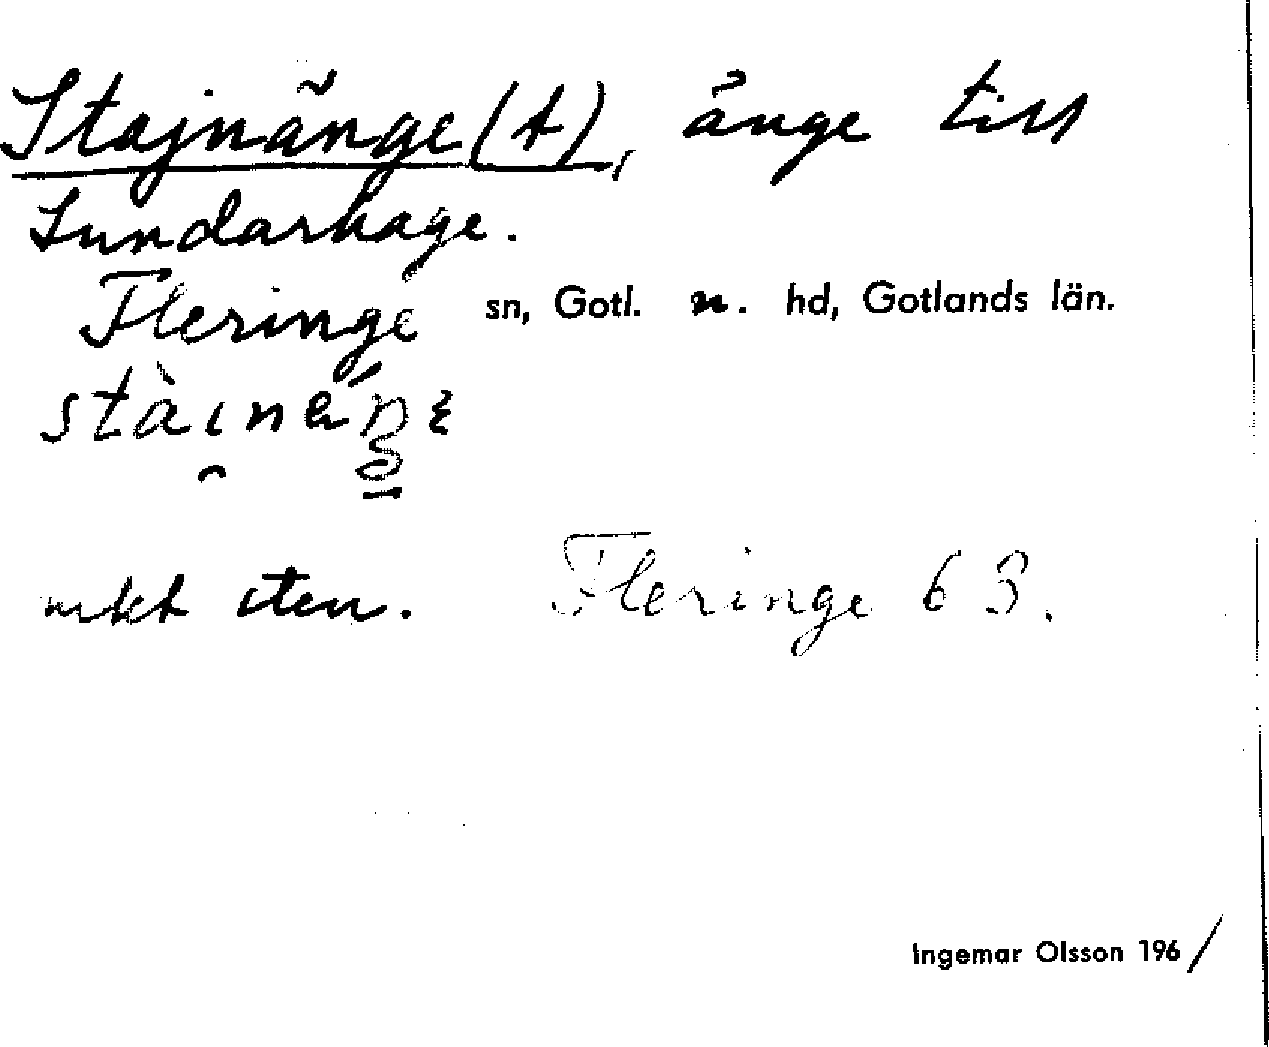 Stajnänge(t), änge till
Sundarhage.
Fleringe sn, Gotl. n. hd, Gotlands län.
mkt sten. Fleringe 63.
Ingemar Olsson 1961